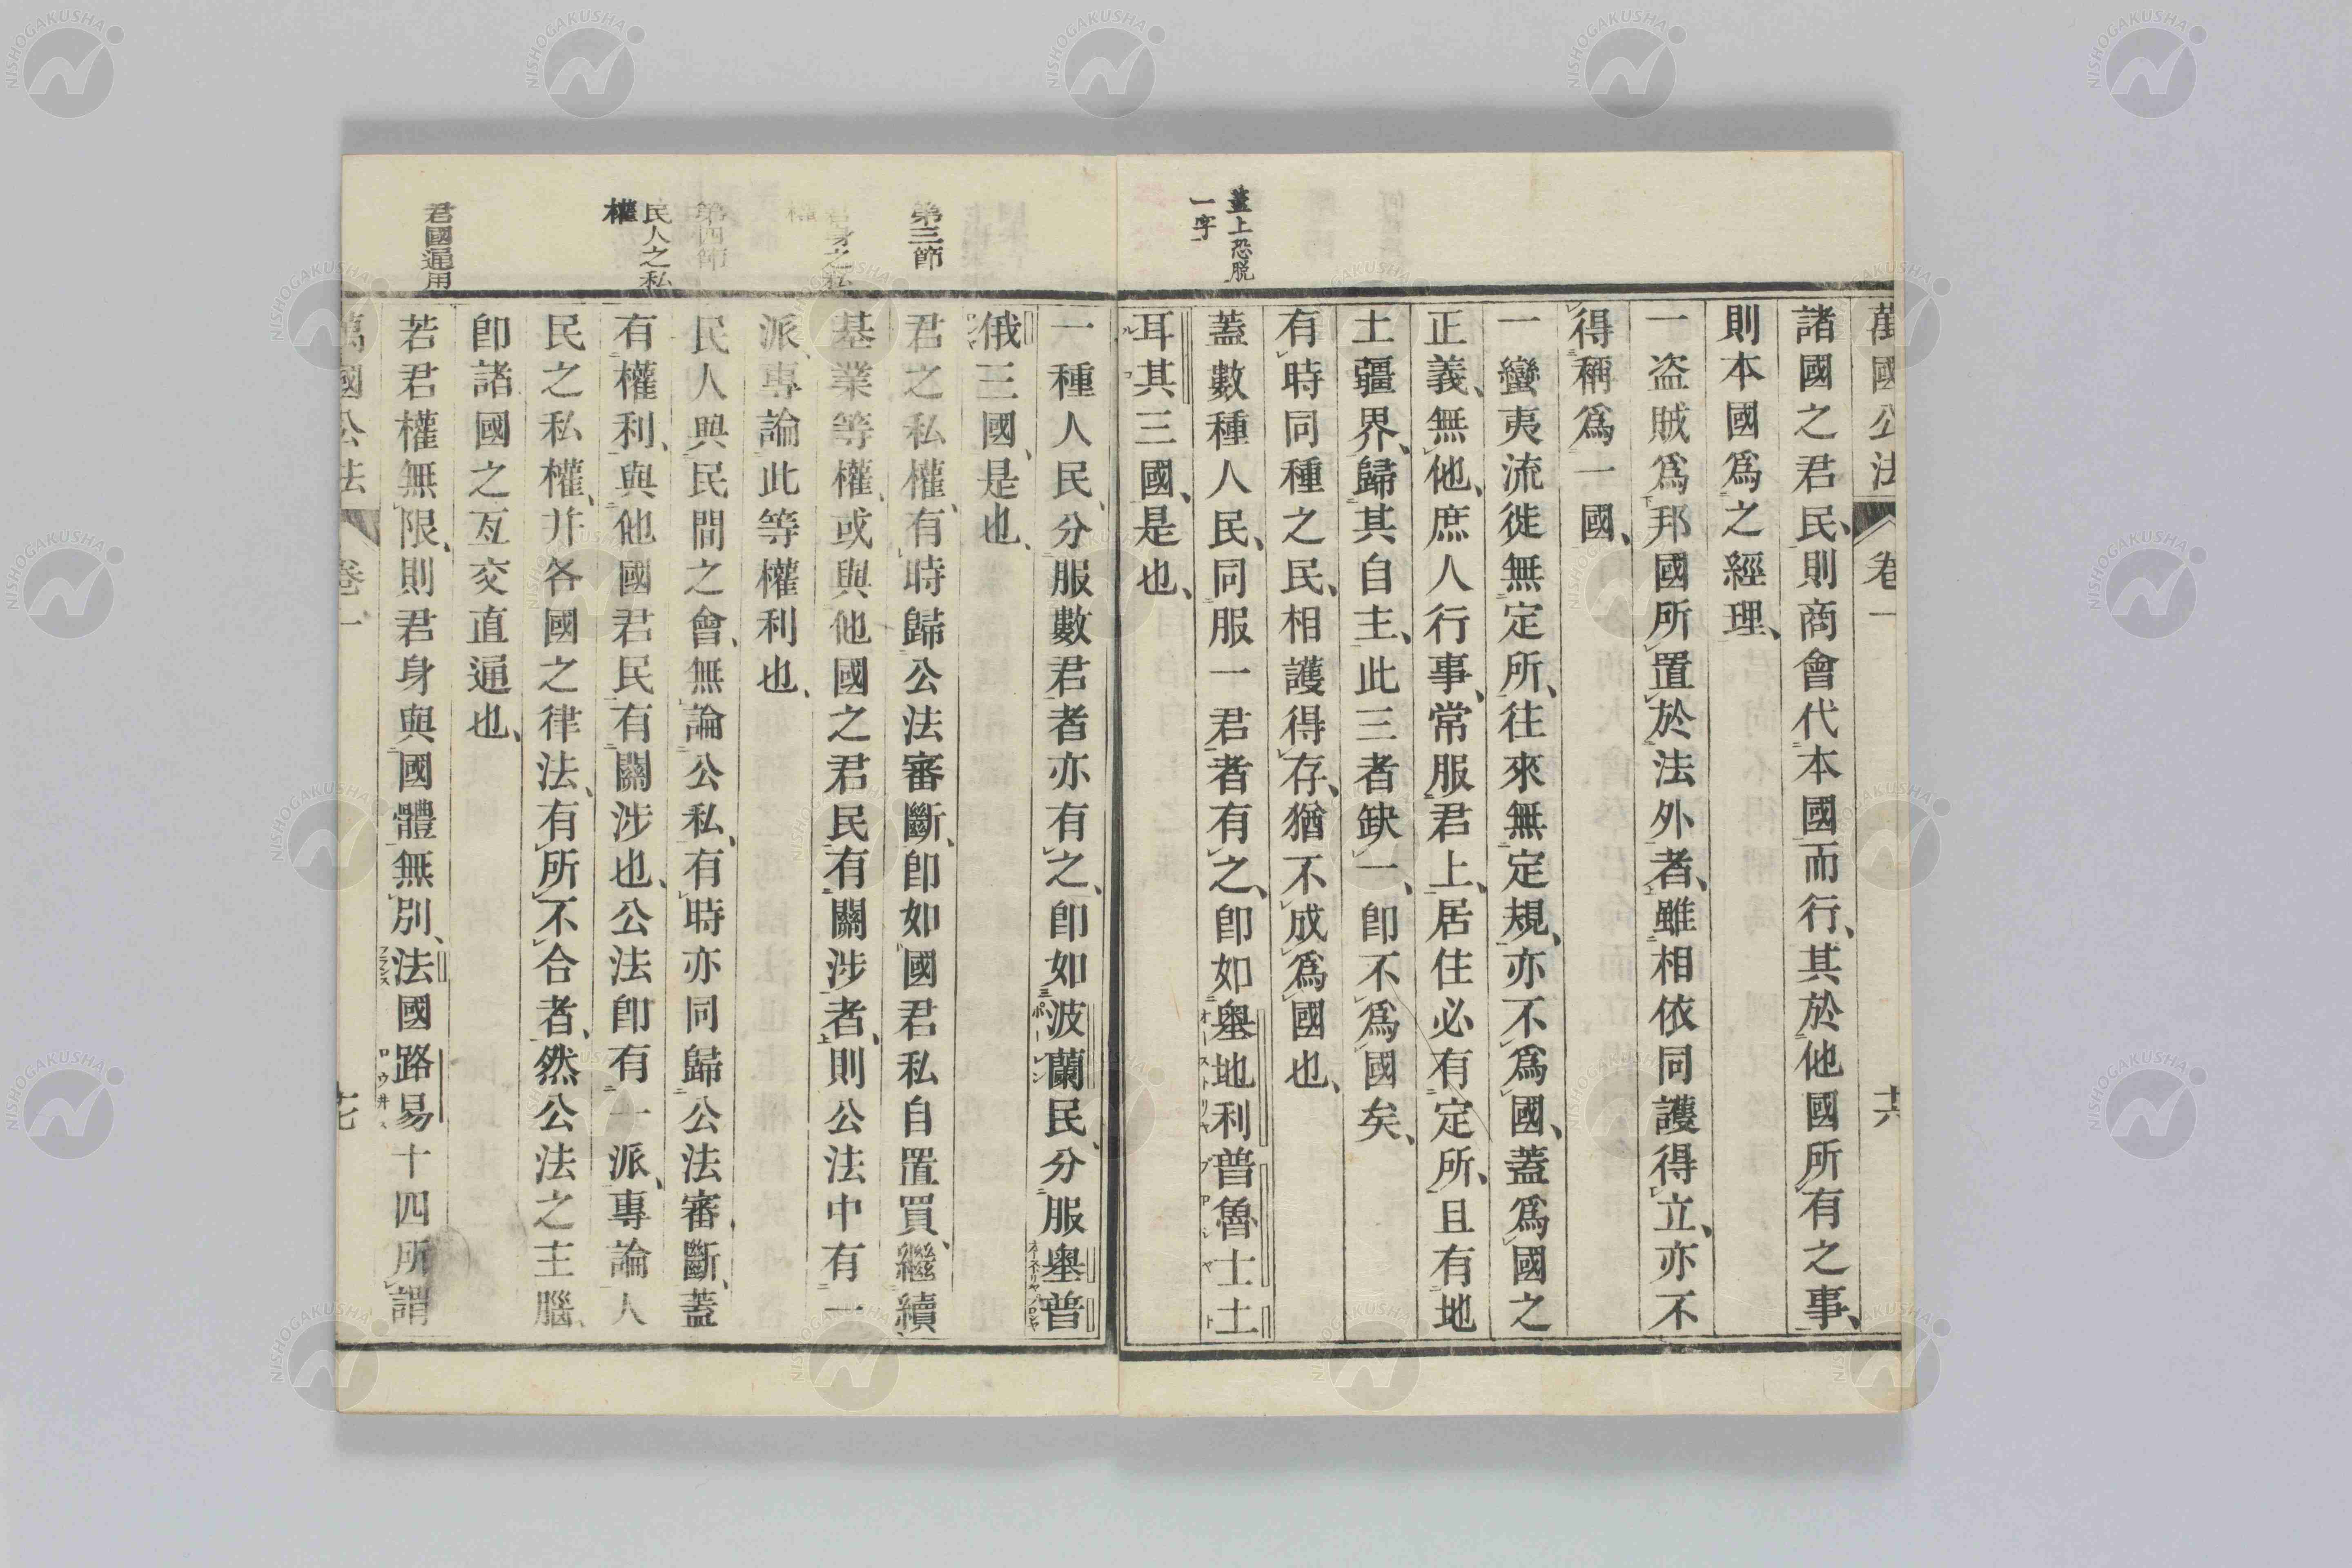 萬國公法 卷一 十六
諸國之君民、則商會代本國而行、其於他國所有之事、
則本國爲之經理、
一盜賊爲邦國所置於法外者、雖相依同護得立、亦不
得稱爲一國、
一蠻夷流徙無定所、往來無定規、亦不爲國、蓋爲國之
正義、無他、庶人行事、常服君上、居住必有定所、且有地
土疆界、歸其自主、此三者缺一、卽不爲國矣、
有時同種之民、相護得存、猶不成爲國也、
蓋上恐脫
一字
蓋數種人民、同服一君者有之、卽如奧地利普魯士土
オーストリヤ プロシヤ ト
耳其三國、是也、
ルコ
一種人民、分服數君者亦有之、卽如波蘭民、分服奧普
ポーレン
俄三國、是也、
第三節
君之私權、有時歸公法審斷、卽如國君私自置買、繼續
君身之私
權
基業等權、或與他國之君民有關涉者、則公法中有一
派、專論此等權利也、
第四節
民人與民間之會、無論公私、有時亦同歸公法審斷、蓋
民人之私
權
有權利、與他國君民有關涉也、公法卽有一派、專論人
民之私權、幷各國之律法、有所不合者、然公法之主腦、
卽諸國之互交直通也、
君國通用
若君權無限、則君身與國體無別、法國路易十四所謂
フランス ロウ井ス
萬國公法 卷一